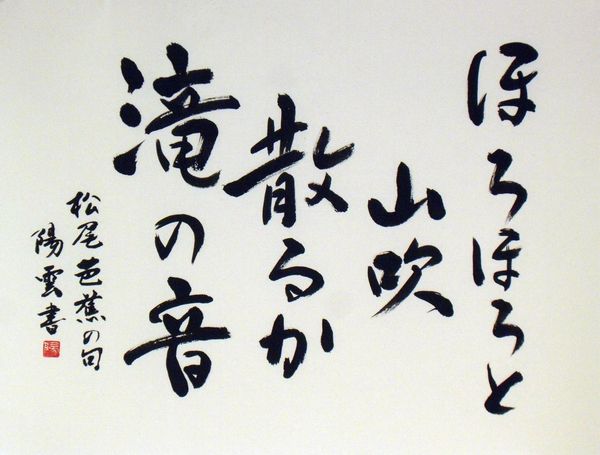 ほろほろと
山吹
散るか
滝の音
松尾芭蕉の句
陽雲書